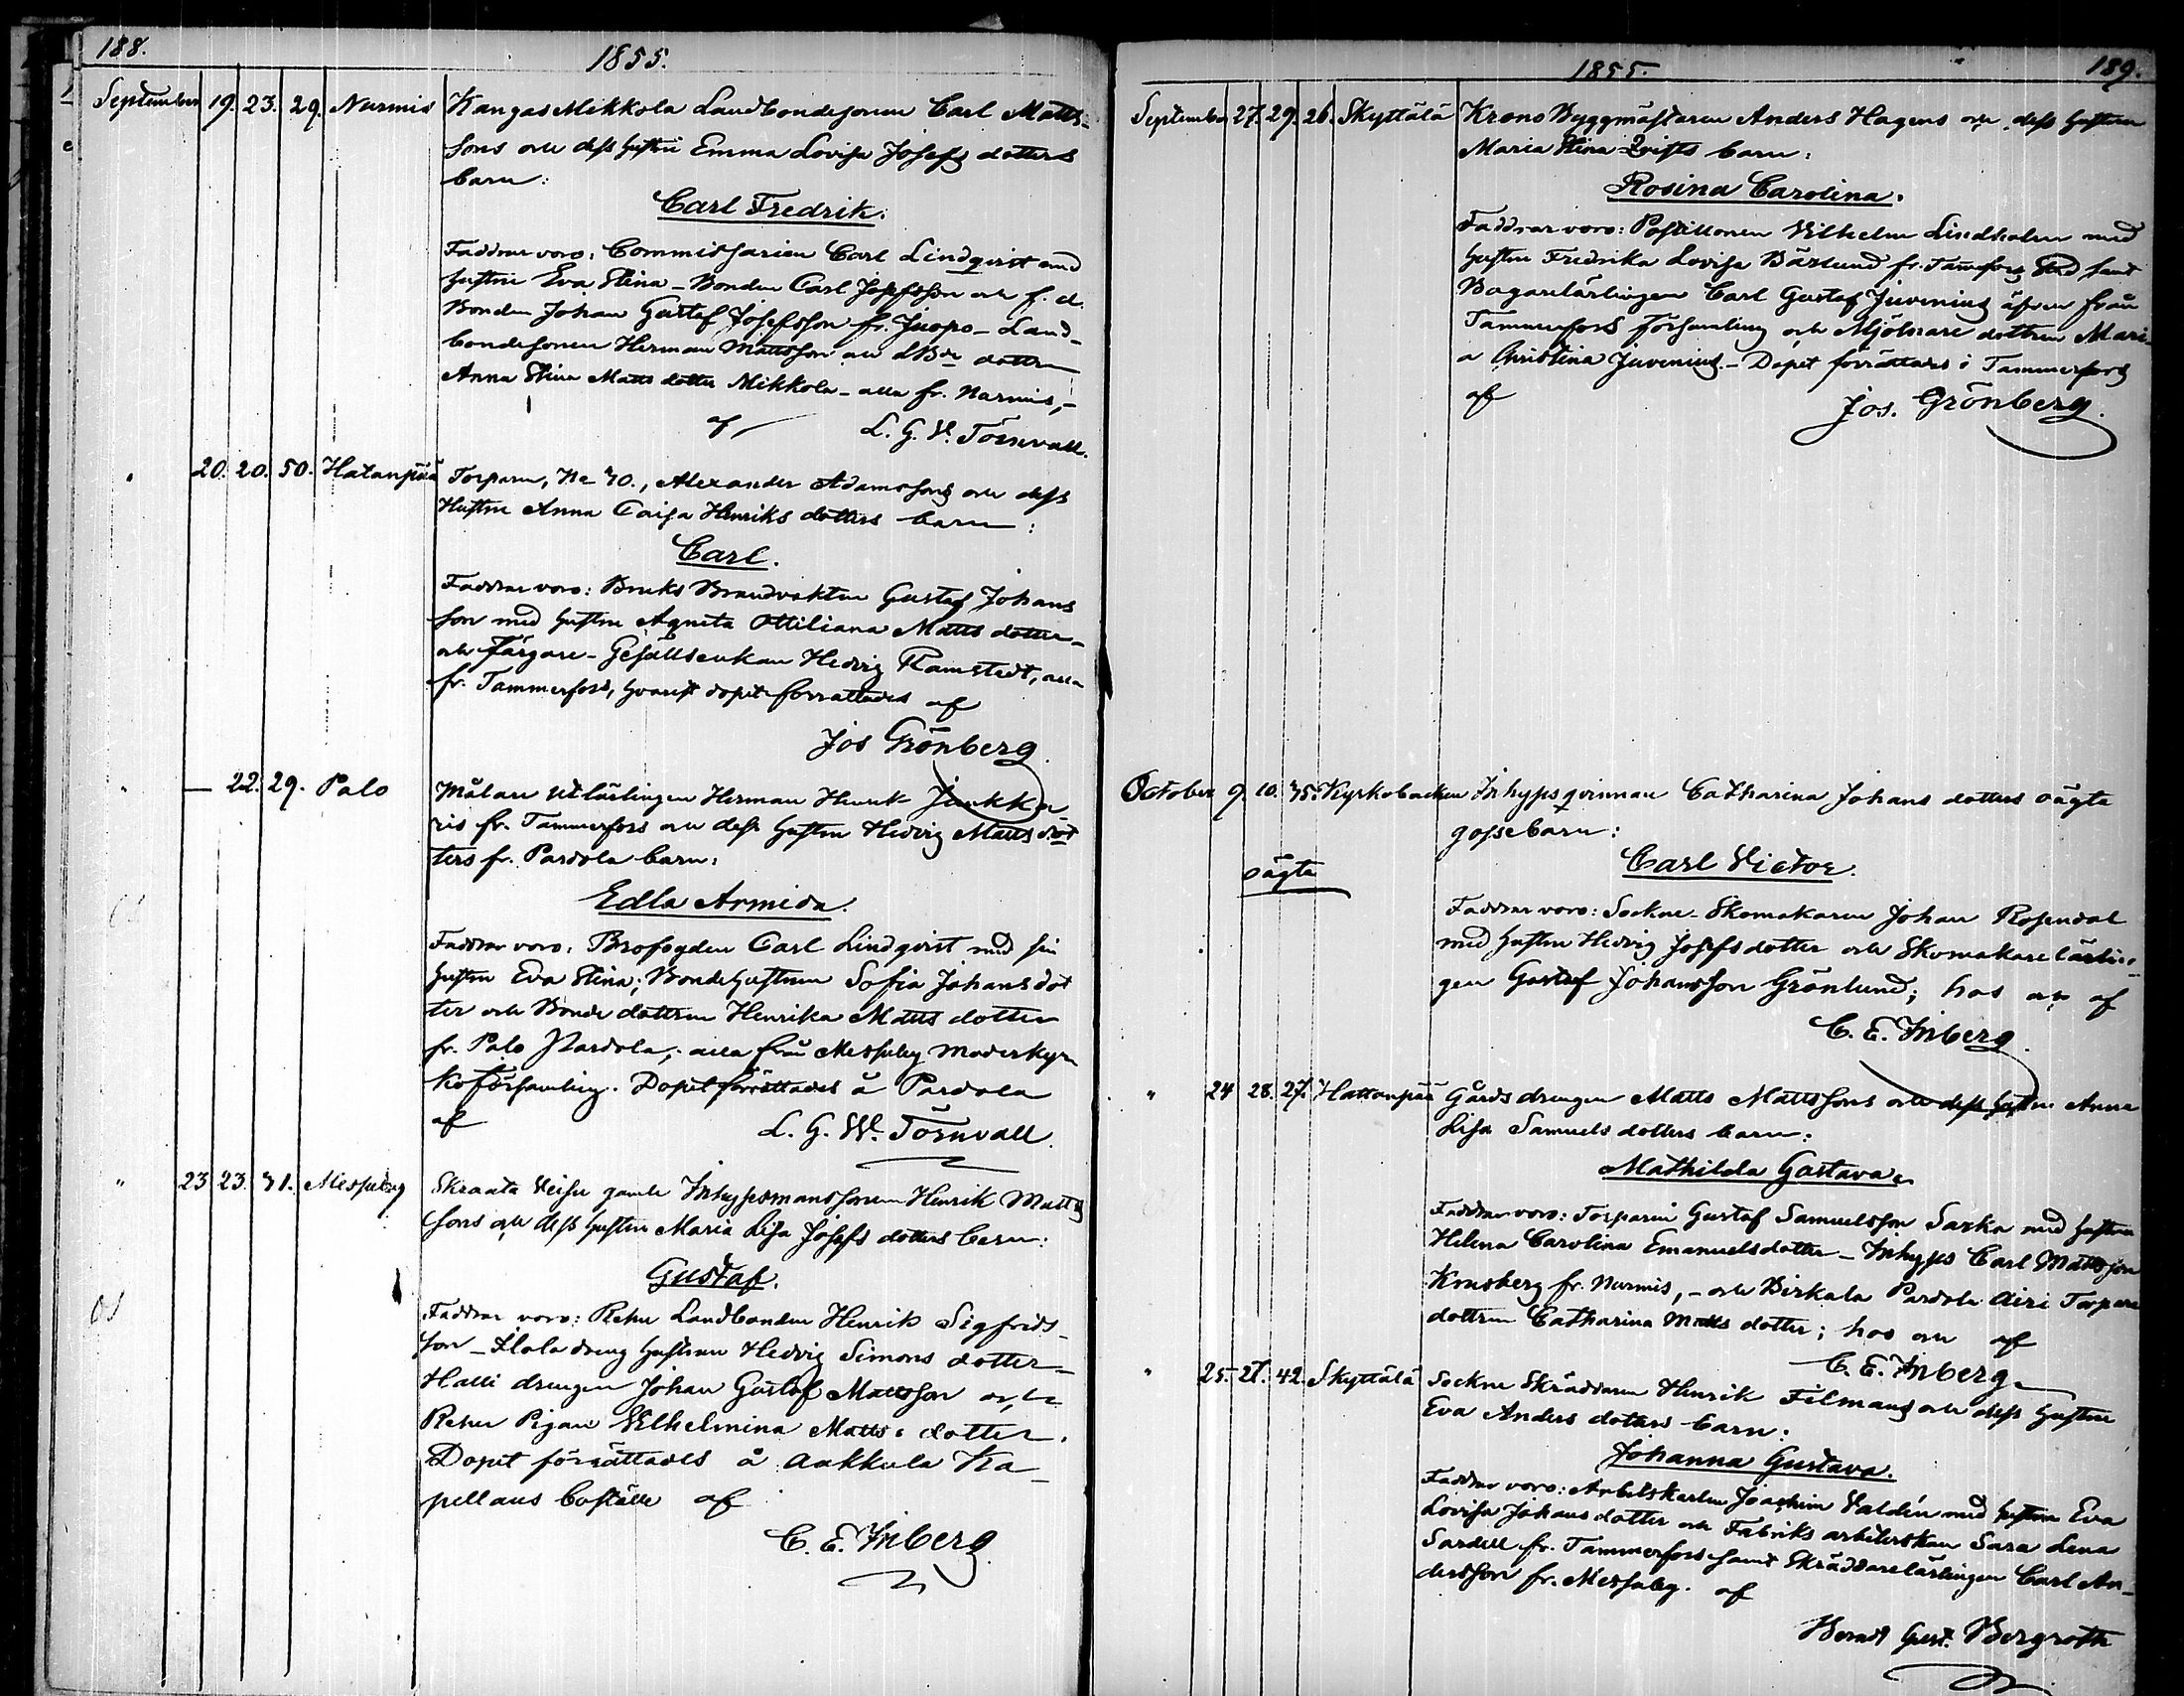 188.
1855.
September 19. 23. 29. Nurmis Kangas Mikkola Landbondesonen Carl Matts-
sons och dess hustru Emma Lovisa Josefs dotters
barn:
Carl Fredrik.
Faddrar voro: Commissarien Carl Lindqvist med
hustru Eva Stina - Bonden Carl Josefsson och f. d.
Bonden Johan Gustaf Josefsson fr. Juopo - Land-
bondesonen Herman Mattsson och LBde dottren
Anna Stina Matts dotter Mikkola - alla fr. Nurmis, -
af L. G. W. Törnvall.
20. 20. 50. Hatanpää Torparen, Alexander Adamssons och dess
Hustru Anna Caisa Henriks dotters barn:
Carl.
Faddrar voro: Bruks Brandvakten Gustaf Johans
son med hustru Agneta Ottiliana Matts dotter -
och Färgare-Gesällsenkan Hedvig Ramstedt, alla
fr. Tammerfors, hvarest dopet förrättades af
Jos Grönberg
" — 22. 29. Palo Målare utlärlingen Herman Henrik
ris fr. Tammerfors och dess hustru Hedvig Matts dot
ters fr. Pardola barn:
Edla Armida.
Faddrar voro: Brofogden Carl Lindqvist med sin
hustru Eva Stina; Bondehustrun Sofia Johans dot
ter och Bonde dottren Henrika Matts dotter
fr. Palo Pardola; alla från Messuby moderkyr
koförsamling. Dopet förrättades å Pardola
af L. G. W. Törnvall.
" 23 23. 31. Messuby Skraata Inhyysmanssonen Henrik Matts
sons och dess hustru Maria Lisa Josefs dotters barn:
Gustaf.
Faddrar voro: Landbonden Henrik Sigfrids-
son - dreng hustrun Hedvig Simons dotter -
Halli drengen Johan Gustaf Mattsson och
Pigan Wilhelmina Matts dotter.
Dopet förrättades å Aakkula Ka-
pellans boställe af
C. E. Inberg
1855.
189.
September 27. 29. 26. Skyttälä Krono Byggmästaren Anders Hagens och dess hustrus
Maria Stina Qvists barn:
Rosina Carolina.
Faddrar voro: Postillonen Vilhelm Lindholm med
hustru Fredrika Lovisa Bärlund fr. Tammerfors Stad samt
Bagarelärlingen Carl Gustaf Juvenius äfven från
Tammerfors församling och Mjölnare dottren Mari-
a Christina Juvenius. - Dopet förrättades i Tammerfors
af Jos. Grönberg.
October 9. 10. 35. Kyrkobacken Inhyysqvinnan Catharina Johans dotters oägta
gossebarn:
oägta
Carl Victor.
Faddrar voro: Sockne-Skomakaren Johan Rosendal
med hustru Hedvig Josefs dotter och Skomakare lärlin-
gen Gustaf Johansson Grönlund; hos och af
C. E. Inberg.
" 24 28. 27. Hattanpää Gårdsdrengen Matts Mattssons och dess hustru Anna
Lisa Samuels dotters barn:
Mathilda Gustava.
Faddrar voro: Torparen Gustaf Samuelsson Sarka med hustru
Helena Carolina Emanuelsdotter - Inhyys Carl Mattsson
Krusberg fr. Nurmis, - och Birkala Pardola Airi Torpare
dottren Catharina Matts dotter; hos och af
C. E. Inberg.
" 25. 27. 42. Skyttälä Sockne Skräddaren Henrik Filmans och dess hustru
Eva Anders dotters barn:
Johanna Gustava.
Faddrar voro: Arbetskarlen Joachim Valdén med hustru Eva
Lovisa Johans dotter och Fabriks arbeterskan Sara Lena
Sardell fr. Tammerfors samt Skräddarelärlingen Carl An-
dersson fr. Messuby. af
Berndt Gust. Bergroth